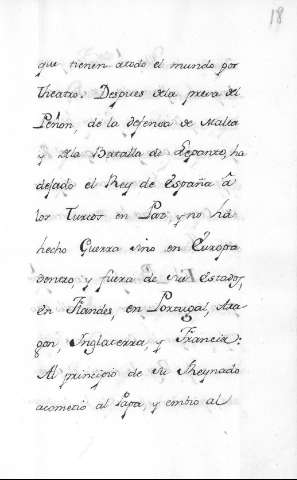 18
que tienen atodo el mundo por
theatro. Despues dela presa del
Peñon, de la defensa de Malta
y dela Batalla de Lepanto, ha
dejado el Rey de España â
los Turcos en Paz, y no há
hecho Guerra sino en Europa
dentro y fuera de sus Estados,
en Flandes, en Portugal, Ara
gon, Inglaterra, y Francia:
Al principio de su Rheynado
acometio al Papa, y embio al